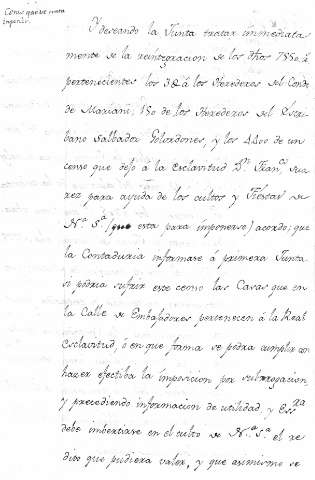 Y deseando la Junta tratar immediata
mente de la reintegracion de los dhos 7850 rs
pertenecientes los 3@ á los Herederos del Conde
de Mariani, 450 de los Herederos del Esta
bano Salbador Golordones, y los 4400 de un
censo que dejó á la Esclavitud Dn. Franco. Sua
rez para ayuda de los cultos y Fiestas de
Na. Sa. (que esta para imponerse) acordo; que
la Contaduria informase á primera Junta
si podria sufrir este como las Casas que en
la Calle de Embajadores pertenecen á la Real
Esclavitud, ó en que forma se podra cumplir con
hazer efectiba la imposicion por subrogacion
y precediendo informacion de utilidad, y Essra.
debe imbertirse en el culto de Na. Sa. el re
dito que pudiera valer, y que asimismo se